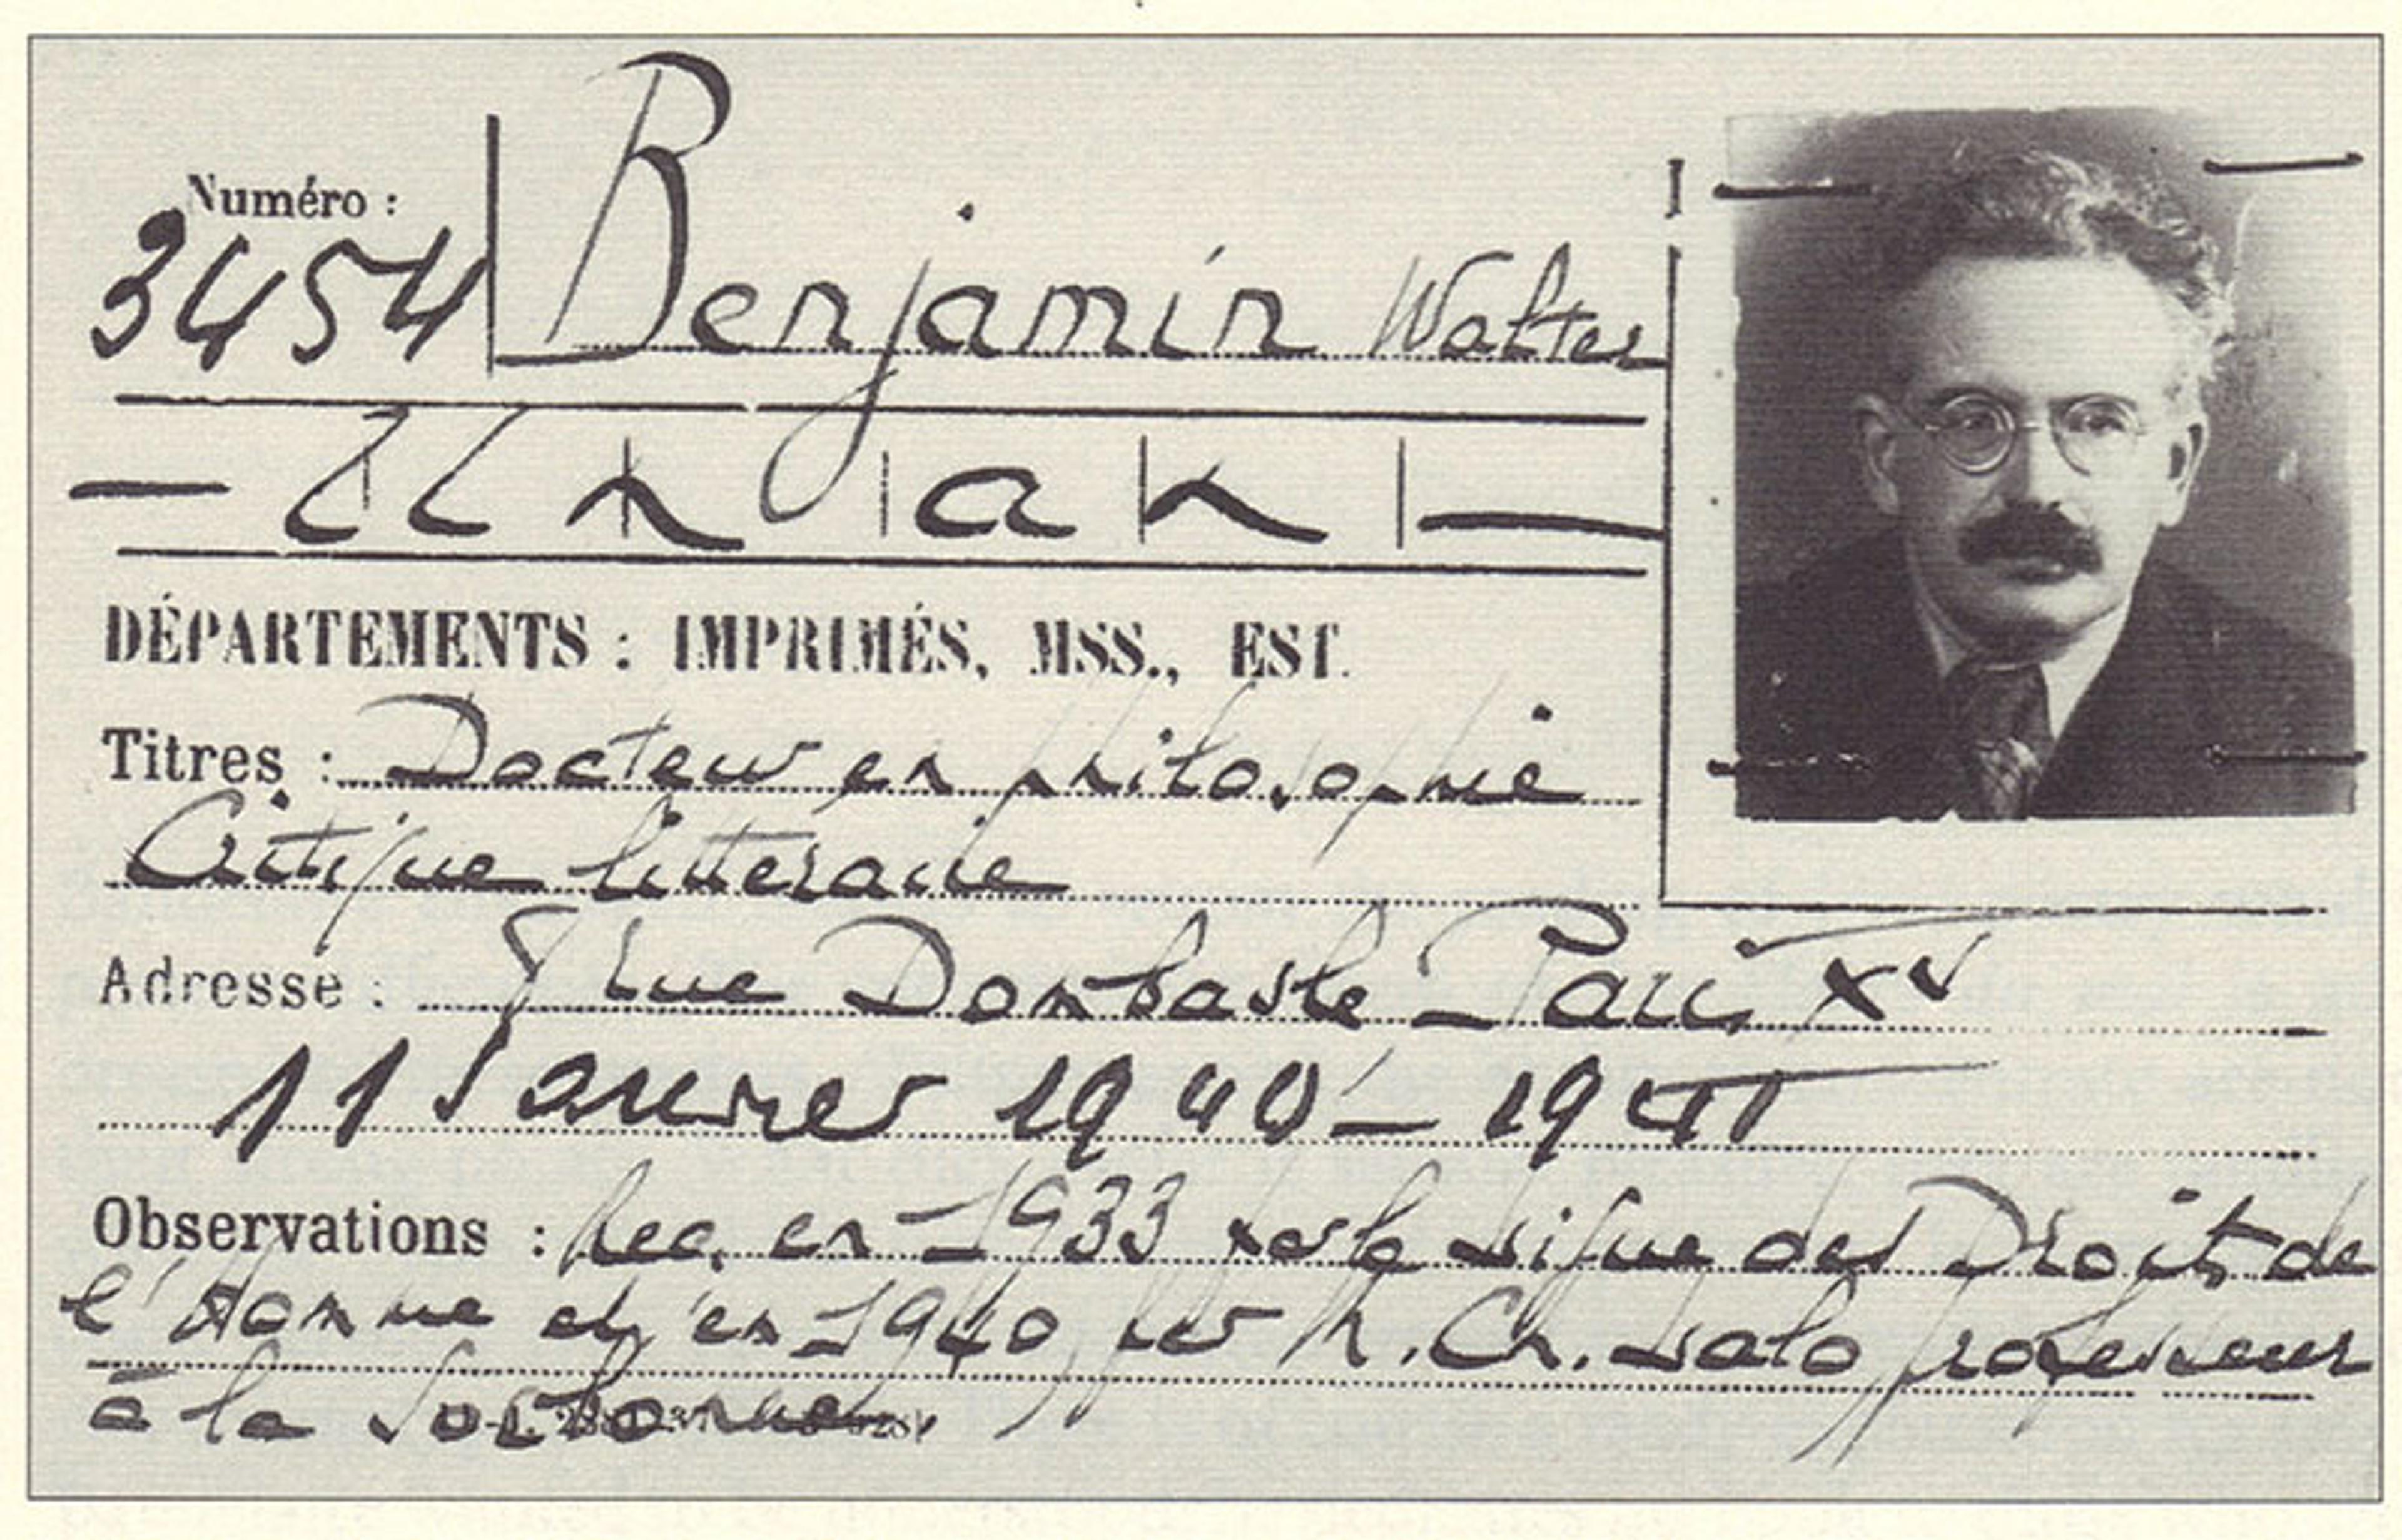 Numéro :
3454
Benjamin Walter
DÉPARTEMENTS : IMPRIMÉS, MSS., EST.
Titres : Docteur en philosophie
Critique littéraire
Adresse : rue Dombasle – Paris XV
11 Janvier 1940 – 1941
Observations : Rec. en 1933 par la Ligue des Droits de
l'Homme et en 1940 par M. Ch. Lalo professeur
à la Sorbonne